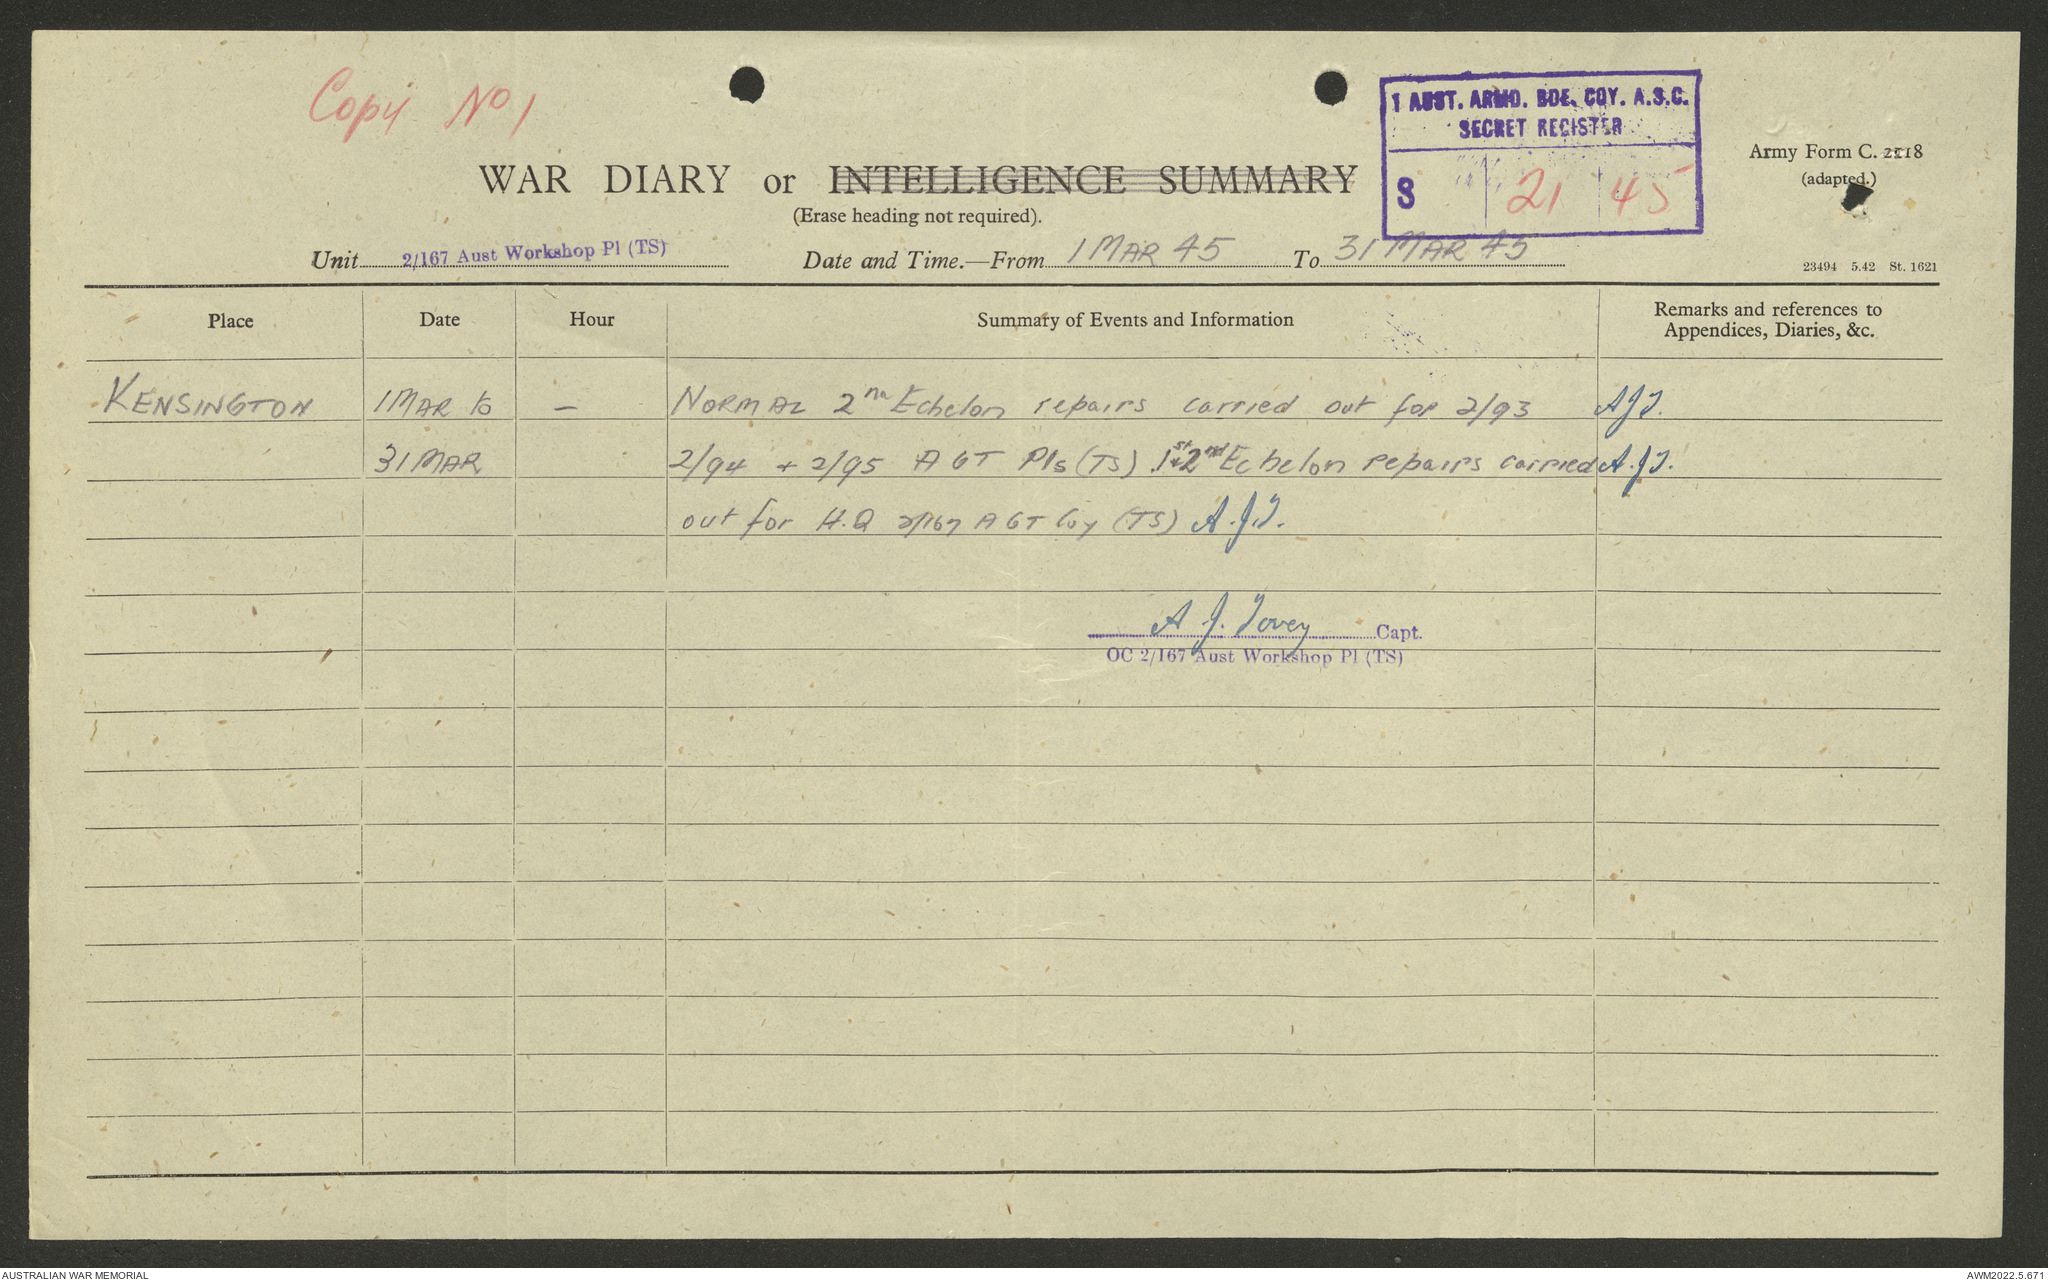 Copy No 1
1 AUST. ARMD. BDE. COY. A.S.C.
SECRET REGISTER
S 21 45
Army Form C. 2118
(adapted.)
WAR DIARY or INTELLIGENCE SUMMARY
(Erase heading not required).
Unit 2/167 Aust Workshop Pl (TS) Date and Time.—From 1 MAR 45 To 31 MAR 45
23494 5.42 St. 1621
Place Date Hour Summary of Events and Information Remarks and references to Appendices, Diaries, &c.
KENSINGTON 1 MAR to — NORMAL 2nd Echelon repairs carried out for 2/93 A.J.T.
31 MAR 2/94 + 2/95 A G T Pls (TS) 1st + 2nd Echelon repairs carried A.J.T.
out for H.Q 2/167 A G T Coy (TS) A.J.T.
A J. Tovey Capt.
OC 2/167 Aust Workshop Pl (TS)
AUSTRALIAN WAR MEMORIAL
AWM2022.5.671